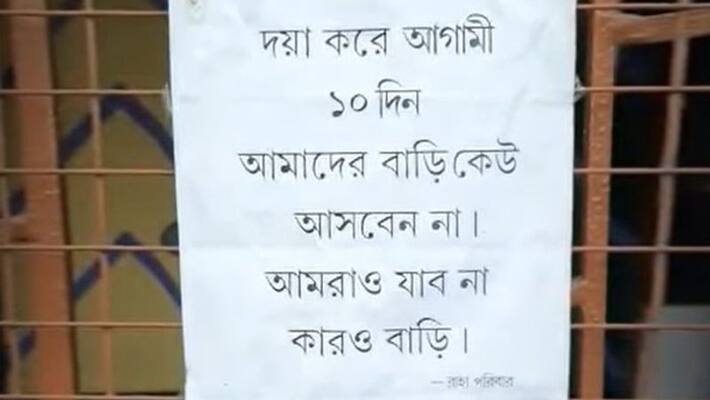 দয়া করে আগামী
১০ দিন
আমাদের বাড়ি কেউ
আসবেন না।
আমরাও যাব না
কারও বাড়ি।
— রাহা পরিবার